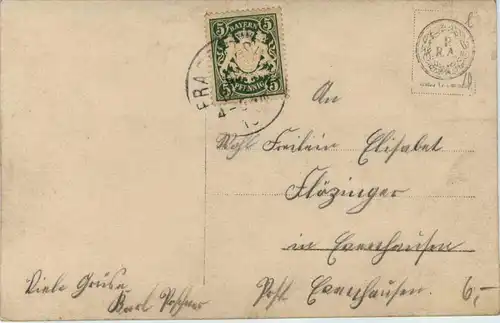 BAYERN
5 5
PFENNIG
5 5
FRA
10
P
R.A.
An
Wohl Freilein Elisabet
Flözinger
in Evenhausen
Post Evenhausen.
6,-
Viele Grüße
Karl